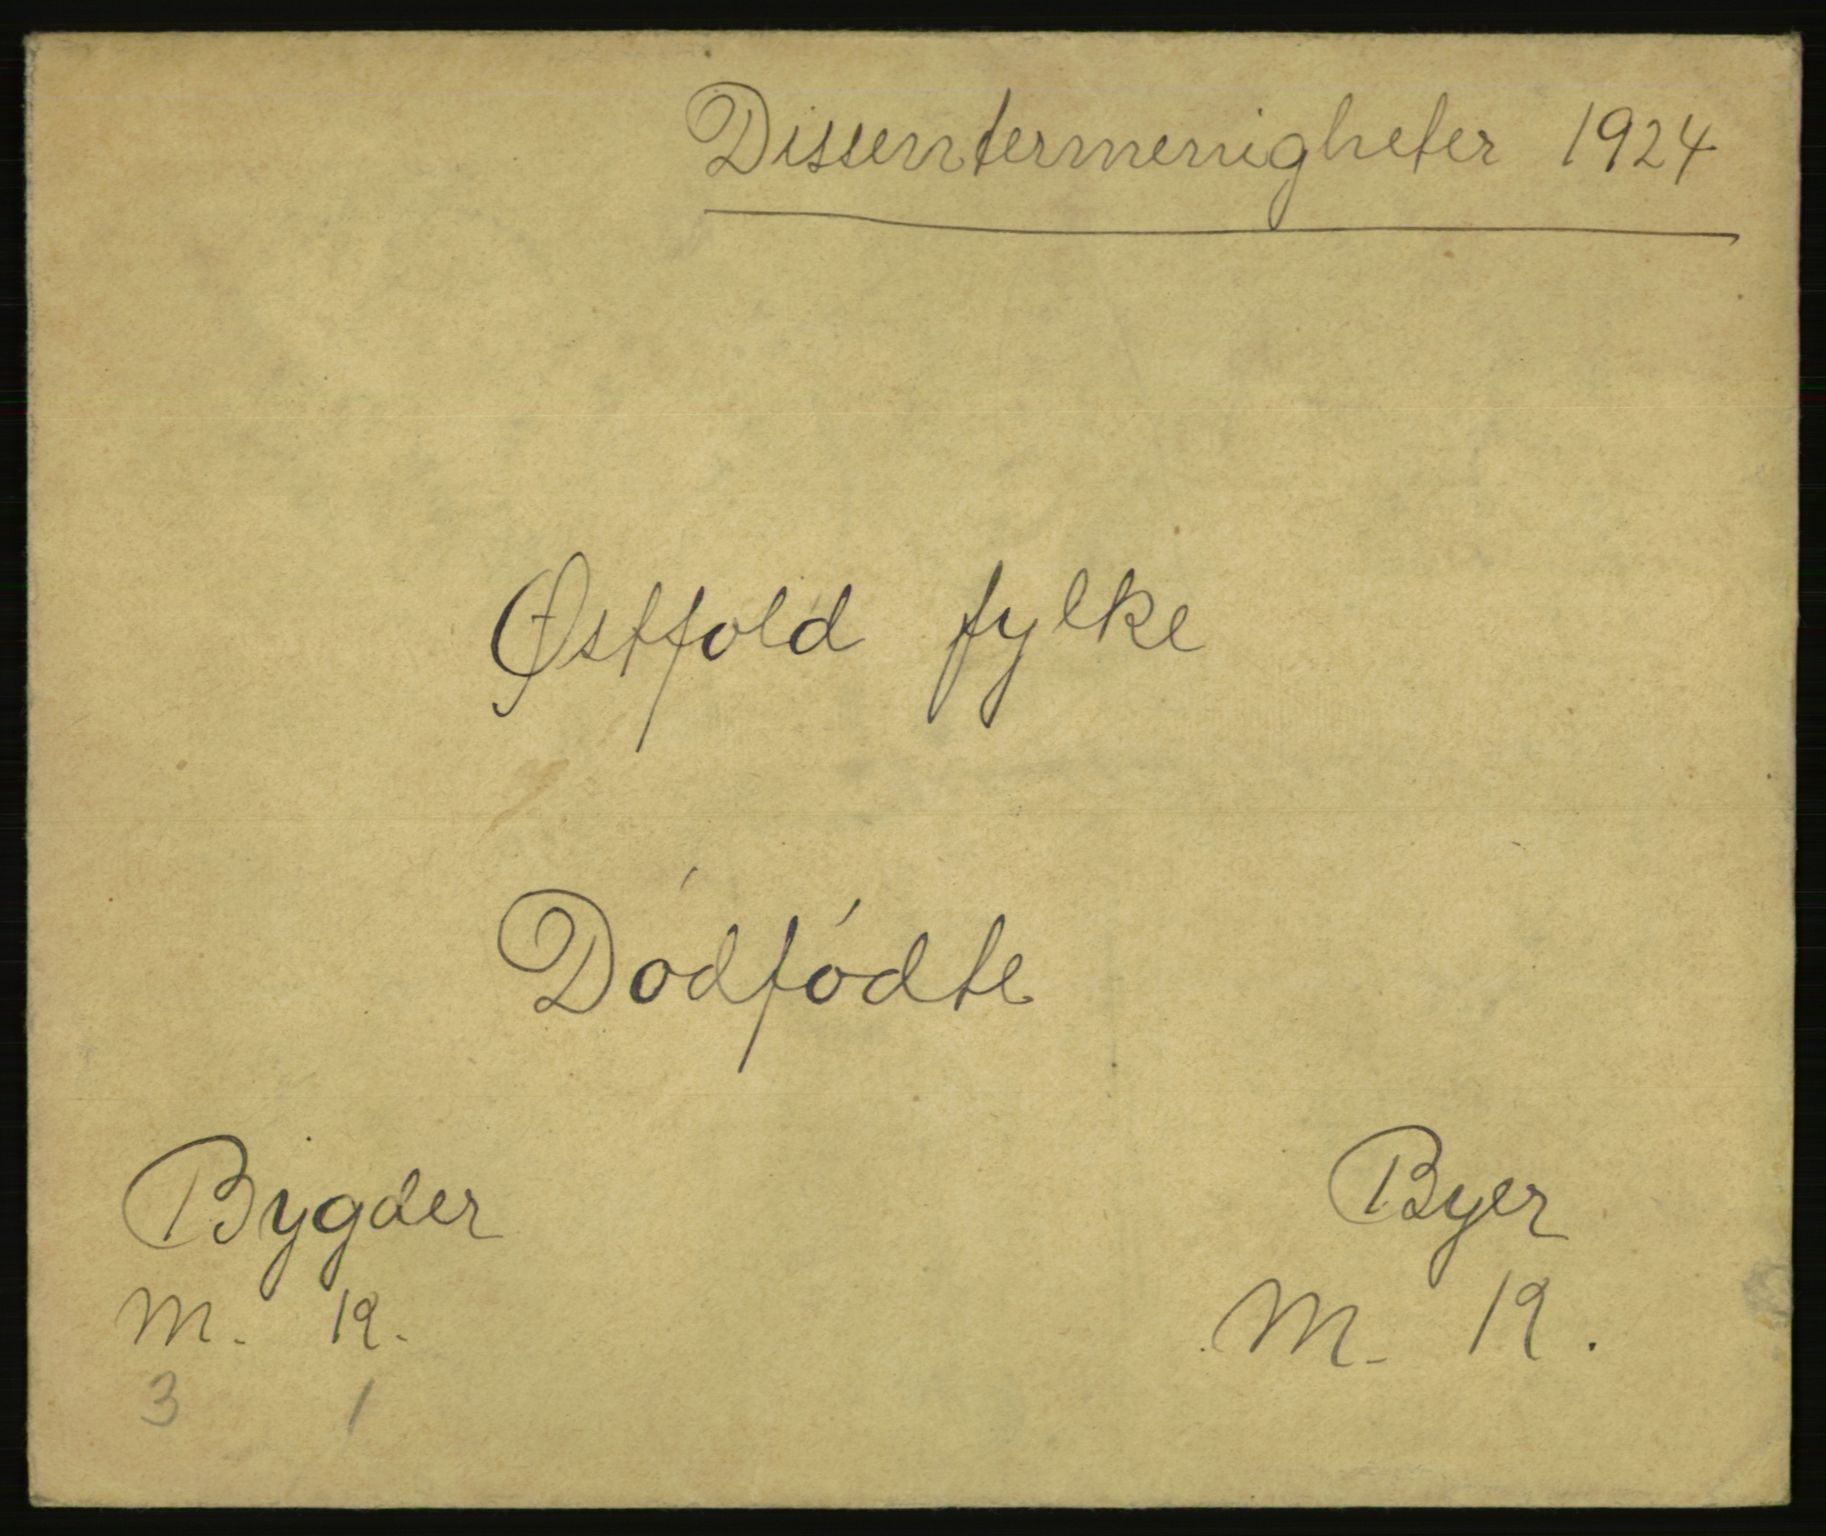 Dissentermenigheter 1924
Østfold fylke
Dódfódte
Bygder
Byer
M. K.
M. K.
3 1